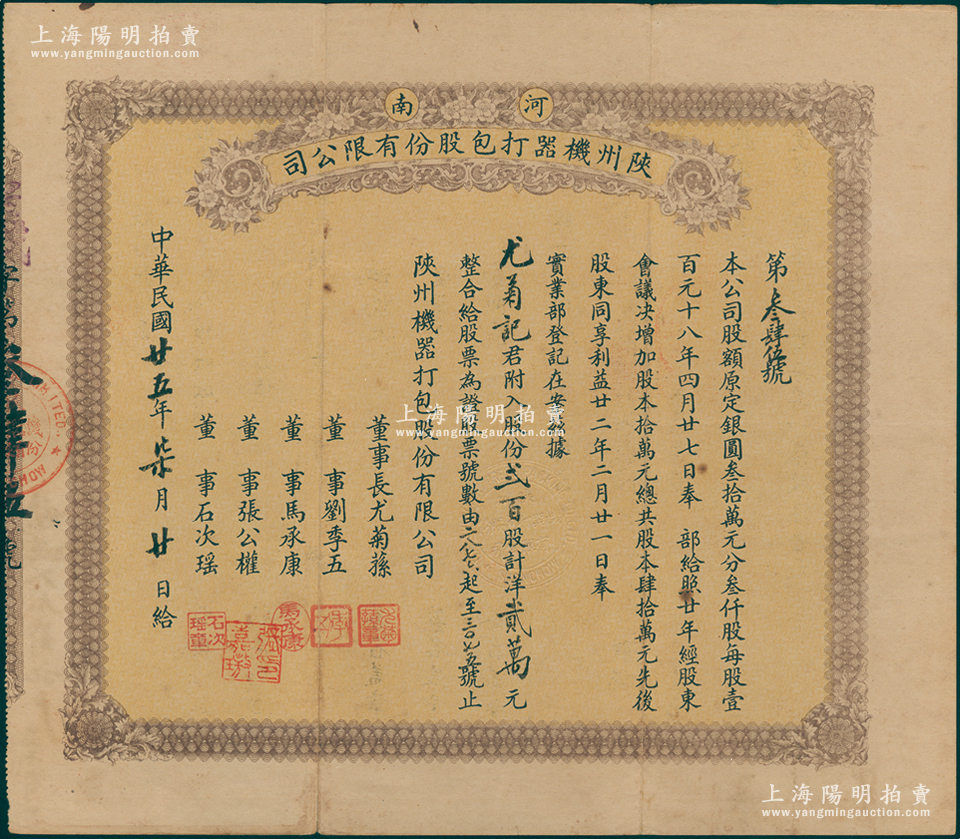 上海陽明拍賣
www.yangmingauction.com
河南
陝州機器打包股份有限公司
第叁肆伍號
本公司股額原定銀圓叁拾萬元分叁仟股每股壹
百元十八年四月廿七日奉 部給照廿年經股東
會議決增加股本拾萬元總共股本肆拾萬元先後
股東同享利益廿二年二月廿一日奉
實業部登記在案為據
尤菊記君附入股份弍百股計洋貳萬元
整合給股票為證股票號數由二八七六起至三〇七五號止
陝州機器打包股份有限公司
董事長尤菊蓀
董事劉季五
董事馬承康
董事張公權
董事石次瑶
中華民國廿五年柒月廿日給
馬承康
石次瑶章
張公嘉璈
ITED
上海陽明拍賣
www.yangmingauction.com
上海陽明拍賣
www.yangmingauction.com